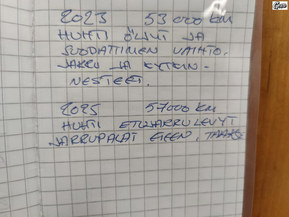 2023 53 000 km
HUHTI ÖLJYT JA
SUODATTIMEN VAIHTO.
JARRU JA KYTKIN-
NESTEET.
2025 57000 km
HUHTI ETUJARRULEVYT
JARRUPALAT ETEEN,